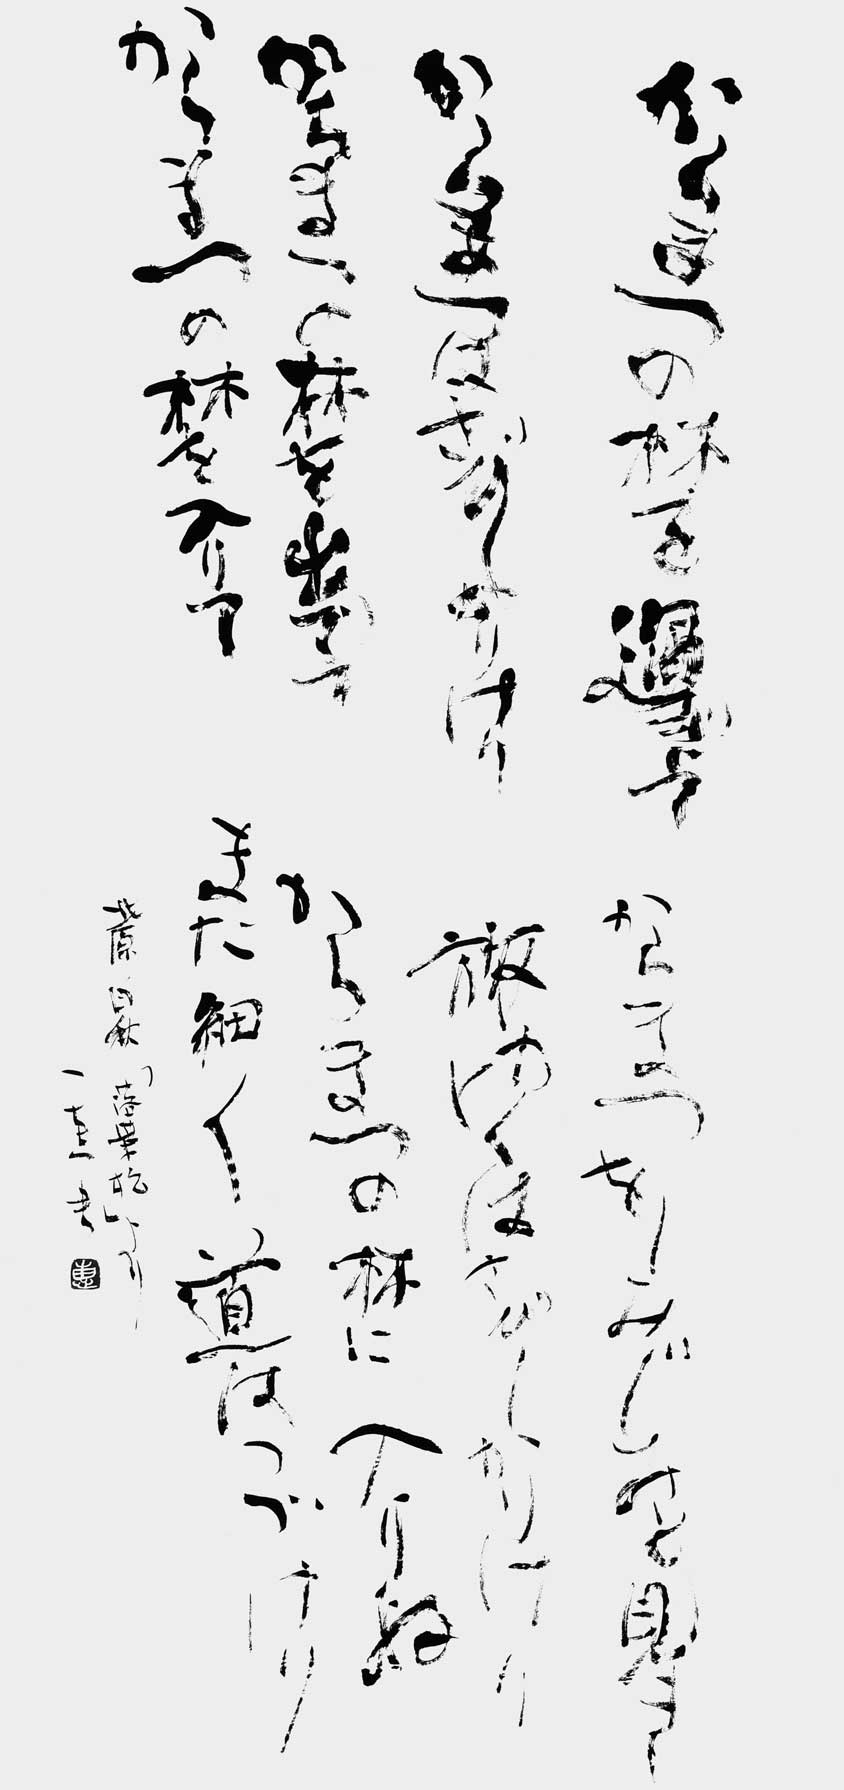 からまつの林を過ぎて
からまつをしみじみと見き
からまつはさびしかりけり
旅ゆくはさびしかりけり
からまつの林を出でて
からまつの林に入りぬ
からまつの林を入りて
また細く道はつづけり
北原白秋「落葉松」より
一恵書